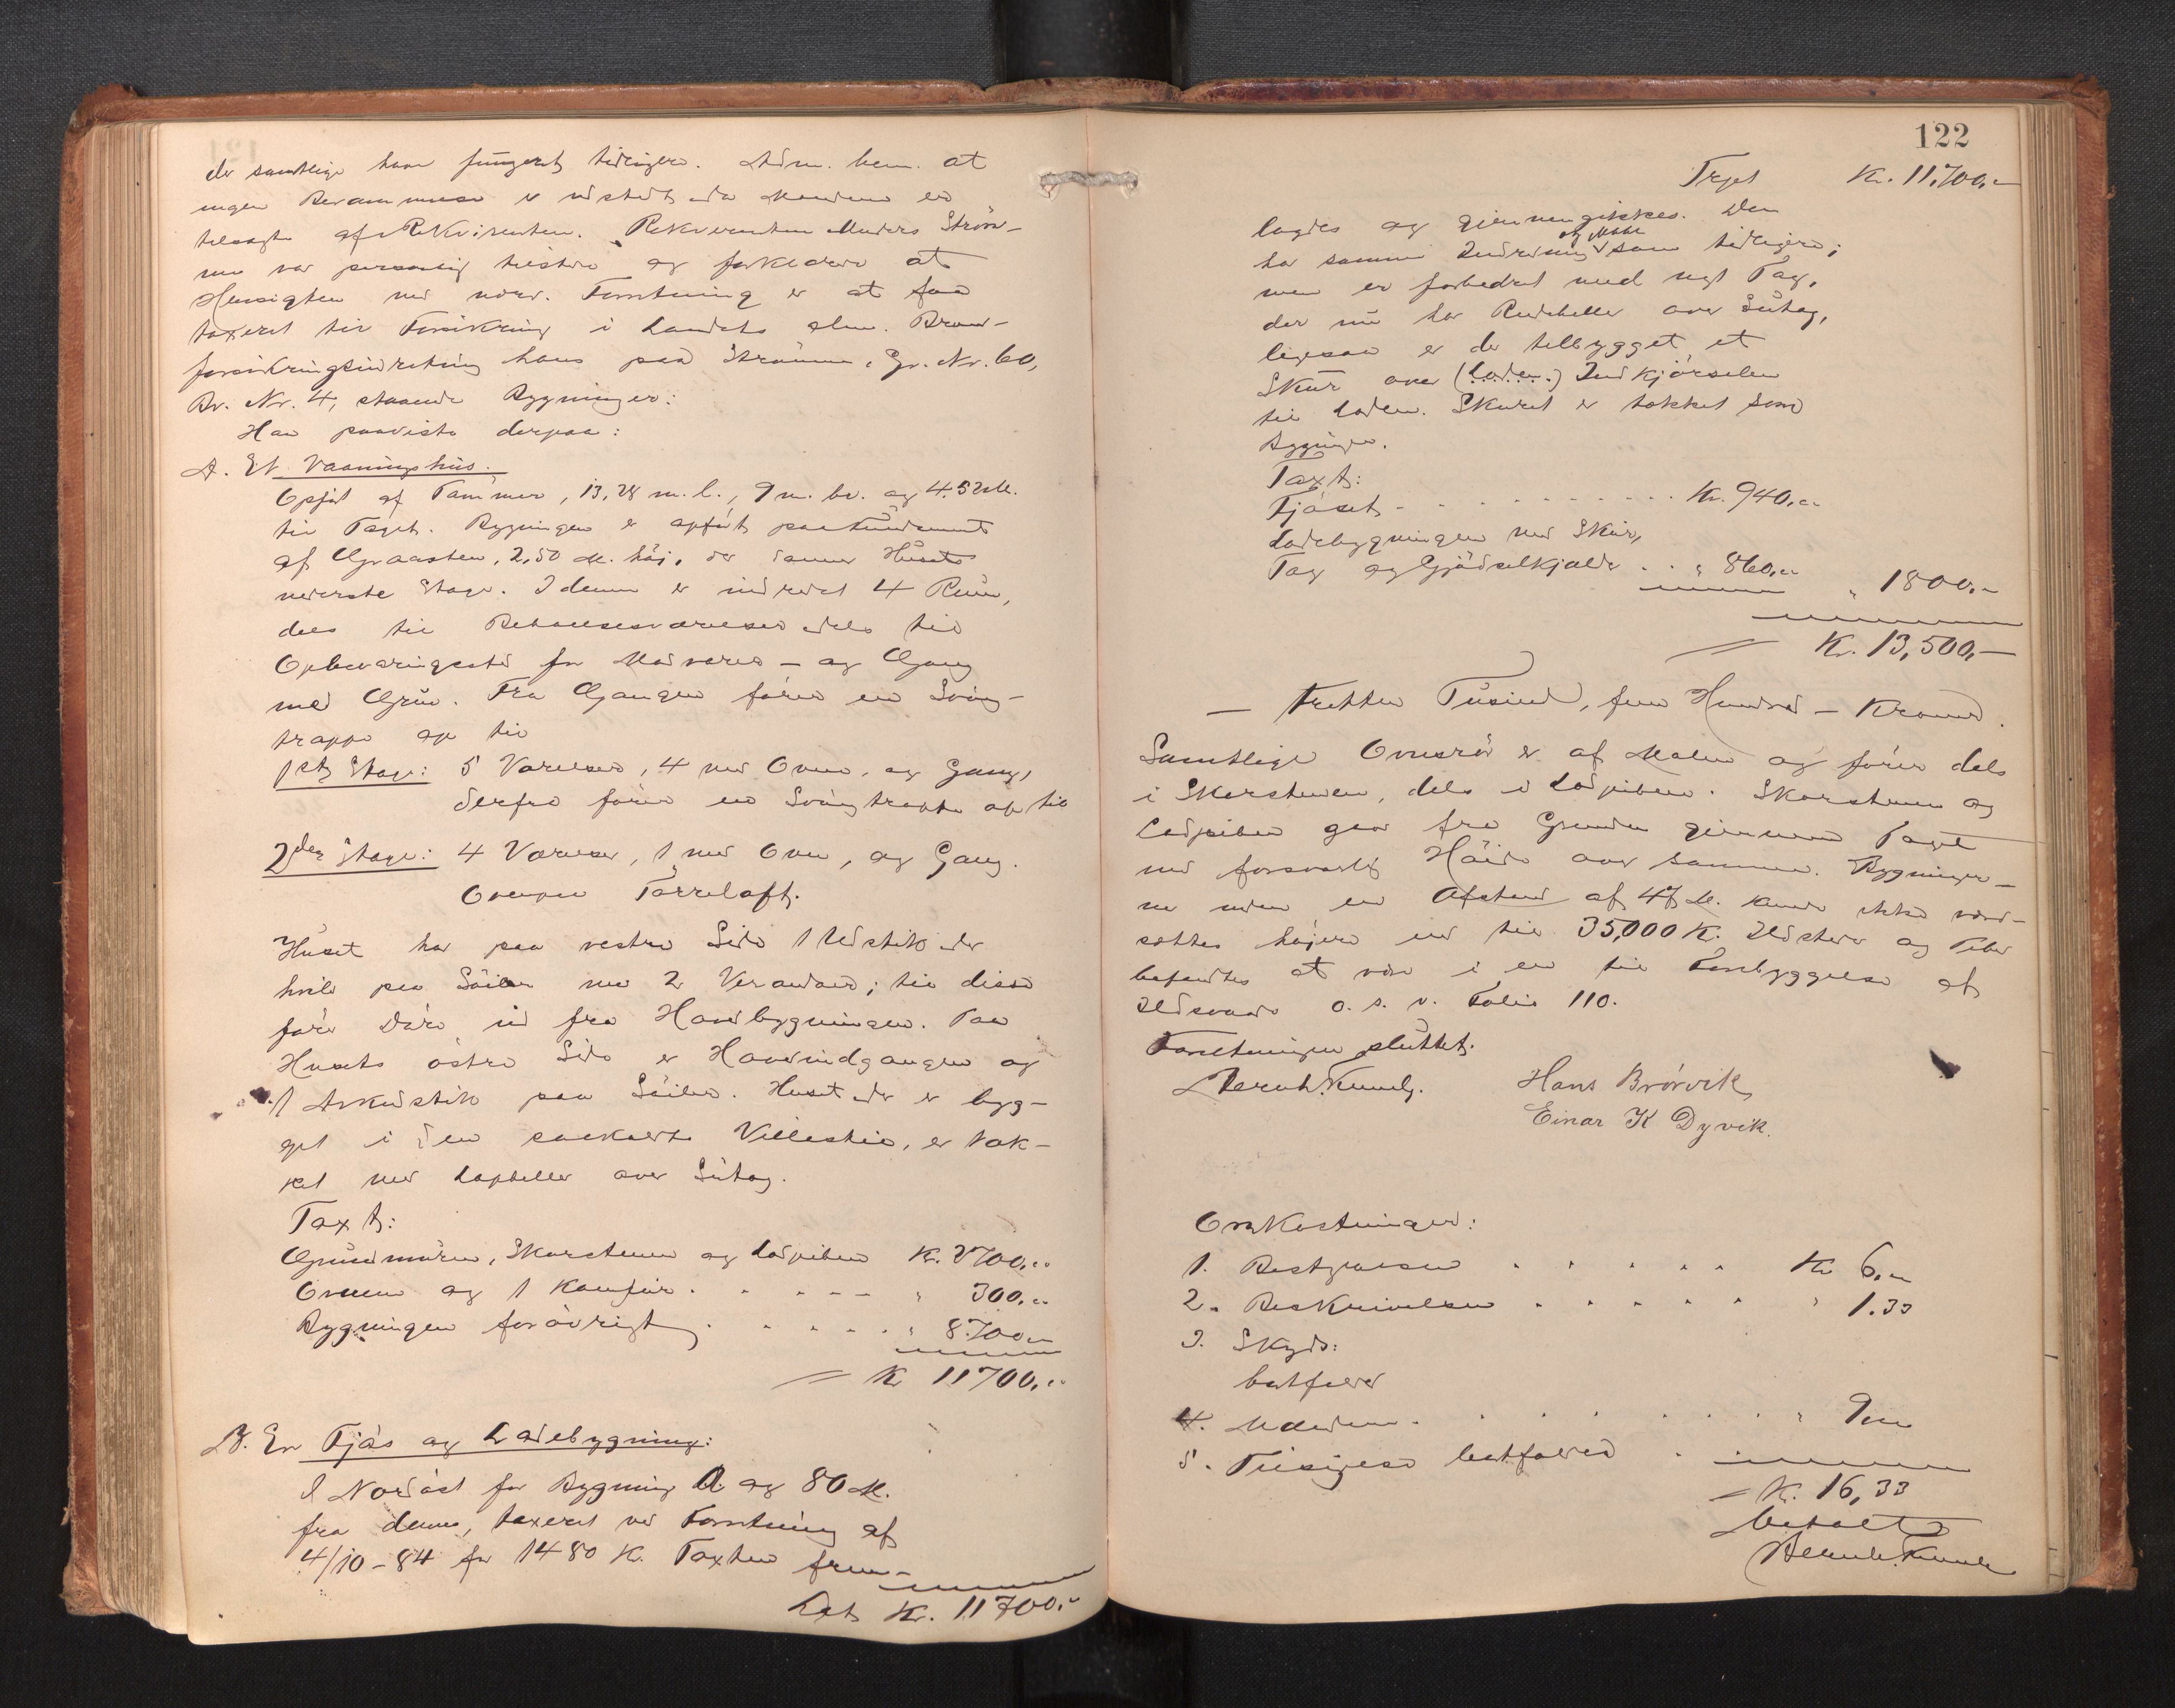 der samtlige har fungeret tidligere. Adm. bem. at
ingen Berammelse er udstedt da Mændene er
tilsagte af Rekvirenten. Rekvirenten Anders Ström-
me var personlig tilstede og forklarede at
Hensigten med nærv. Forretning er at faa
taxeret til Forsikring i Landets alm. Brand-
forsikringsindretning hans paa Strömme, Gr. Nr. 60,
Br. Nr. 4, staaende Bygninger:
Han paaviste derpaa:
A. Et Vaaningshus.
Opfört af Tömmer, 13,28 m. l., 9 m. br. og 4.52 M.
til Taget. Bygningen er opfört paa Fundament
af Graasten, 2,50 M. höj, der danner Husets
nederste Etage. I denne er indredet 4 Rum,
dels til Beboelsesværelser dels til
Opbevaringssted for Madvarer - og Gang
med Grue. Fra Gangen förer en Sving-
trappe op til
1ste Etage: 5 Værelser, 4 med Ovne, og Gang,
derfra förer en Svingtrappe op til
2den Etage: 4 Værelser, 1 med Ovn, og Gang.
Ovenpaa Törreloft.
Huset har paa vestre Side 1 Udstik der
hvile paa Söiler med 2 Verandaer; til disse
förer Döre ud fra Hovedbygningen. Paa
Husets östre Side er Hovedindgangen og
1 Arkudstik paa Söiler. Huset der er byg-
get i den saakaldte Villastil, er tæk-
ket med Lapheller over Sutag.
Taxt:
Grundmuren, Skorstenen og Lodpiben Kr. 2700,00
Ovnene og 1 Komfur. . . - - - " 300,00
Bygningen forövrigt . . . . . " 8700,00
= Kr 11700,00
B. En Fjös og Ladebygning:
I Nordöst for Bygning A og 80 M.
fra denne, taxeret ved Forretning af
4/10-84 for 1480 K. Taxten frem-
Lat. Kr. 11700,-
122
Trpt Kr. 11,700,-
lagdes og gjennemgikkes. Den
har samme Indredning og Maal som tidligere;
men er forbedret med nyt Tag,
der nu har Rudeheller over Sutag,
ligesaa er der tilbygget et
Skur over (Laden.) Indkjörselen
til Laden. Skuret er tækket som
Bygningen.
Taxt:
Fjöset - . . . . . . . . Kr. 940,00
Ladebygningen med Skur,
Tag og Gjödselkjelder . . " 860,00 " 1800,-
= Kr. 13,500,-
- Tretten Tusind, fem Hundred - Kroner.
Samtlige Ovnsrör er af Malm og förer dels
i Skorstenen, dels i Lodpiben. Skorstenen og
Lodpiben gaar fra Grunden gjennem Taget
med forsvarlig Höide over samme. Bygninger-
ne inden en Afstand af 47 M. kunde ikke værd-
sættes höjere end til 35,000 K. Ildsteder og Piber
befandtes at være i en til Forebyggelse af
Ildsvaade o. s. v. Folio 110.
Forretningen sluttet.
Hans Brörvik
Einar K Dyvik.
Omkostninger:
1. Bestyrelsen . . . . . Kr 6,00
2. Beskrivelsen . . . . . " 1.33
3. Skyds:
bortfalder
4. Mændene . . . . . . . . " 9,00
5. Tilsigelse bortfalder .
= Kr. 16,33
Betalt